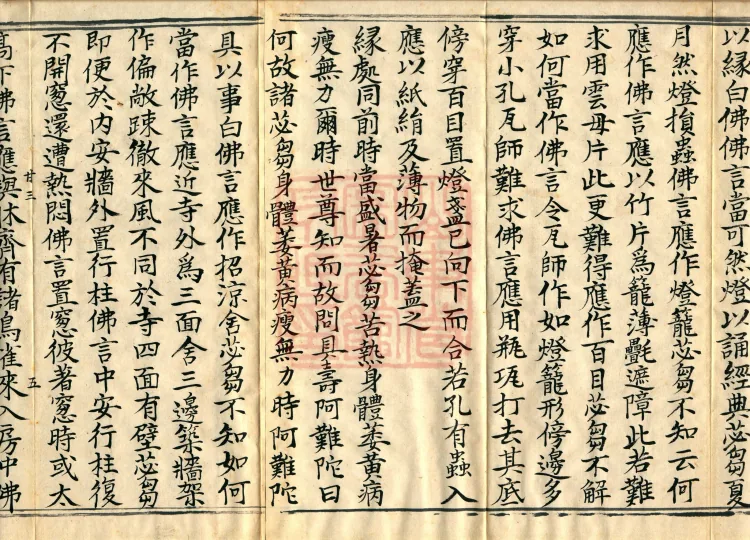 以緣白佛佛言當可然燈以誦經典苾芻夏
月然燈損蟲佛言應作燈籠苾芻不知云何
應作佛言應以竹片為籠薄㲲遮障此若難
求用雲母片此更難得應作百目苾芻不解
如何當作佛言令瓦師作如燈籠形傍邊多
穿小孔瓦師難求佛言應用瓶瓨打去其底
傍穿百目置燈盞已向下而合若孔有蟲入
應以紙絹及薄物而掩蓋之
緣處同前時當盛暑苾芻苦熱身體萎黃病
瘦無力爾時世尊知而故問具壽阿難陀曰
何故諸苾芻身體萎黃病瘦無力時阿難陀
具以事白佛言應作招涼舍苾芻不知如何
當作佛言應近寺外為三面舍三邊築牆架
作偏敞踈徹來風不同於寺四面有壁苾芻
即便於內安牆外置行柱佛言中安行柱復
不開窓還遭熱悶佛言置窓彼著窓時或太
甘三
五
高下佛言應與牀齊有諸鳥雀來入房中佛